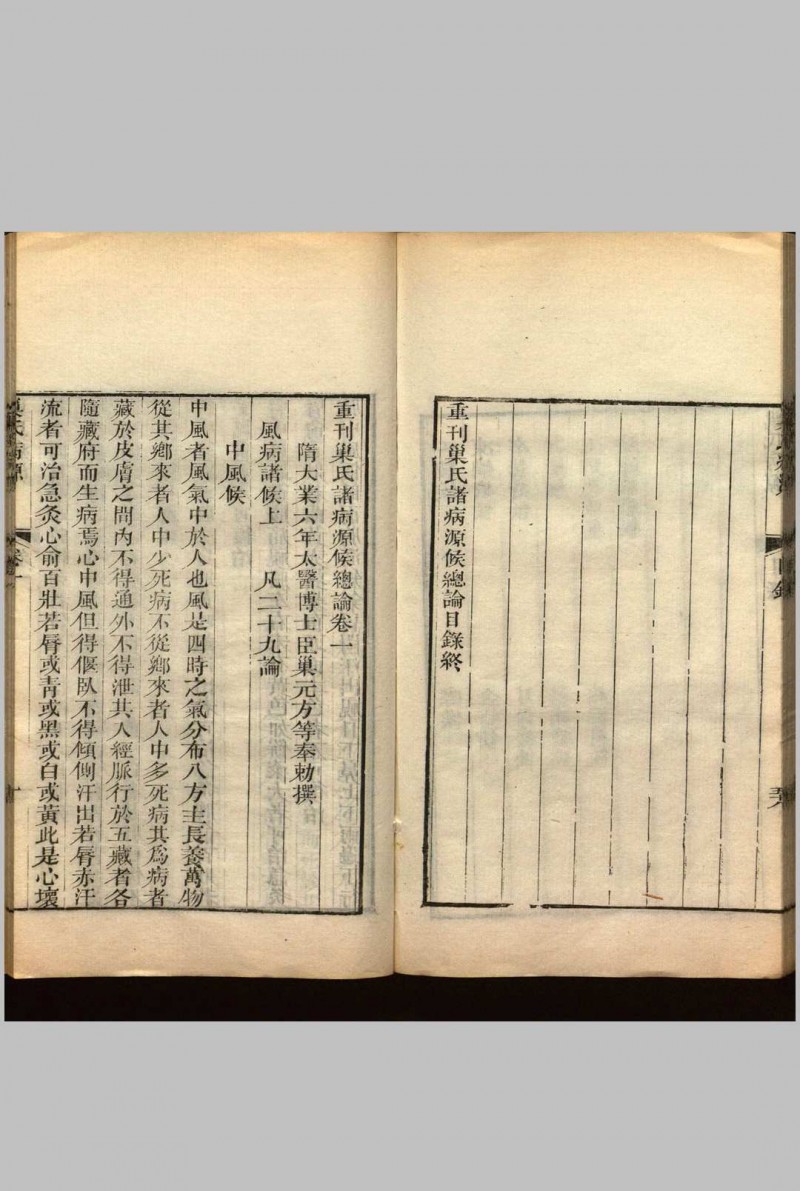 重刊巢氏諸病源候總論目錄終
重刊巢氏諸病源候總論卷一
隋大業六年太醫博士臣巢元方等奉勅撰
風病諸候上　凡二十九論
中風候
中風者風氣中於人也風是四時之氣分布八方主長養萬物
從其鄉來者人中少死病不從鄉來者人中多死病其爲病者
藏於皮膚之間內不得通外不得泄其入經脈行於五藏者各
隨藏府而生病焉心中風但得偃臥不得傾側汗出若脣赤汗
流者可治急灸心俞百壯若脣或青或黑或白或黃此是心壞
巢氏病源　卷一　一